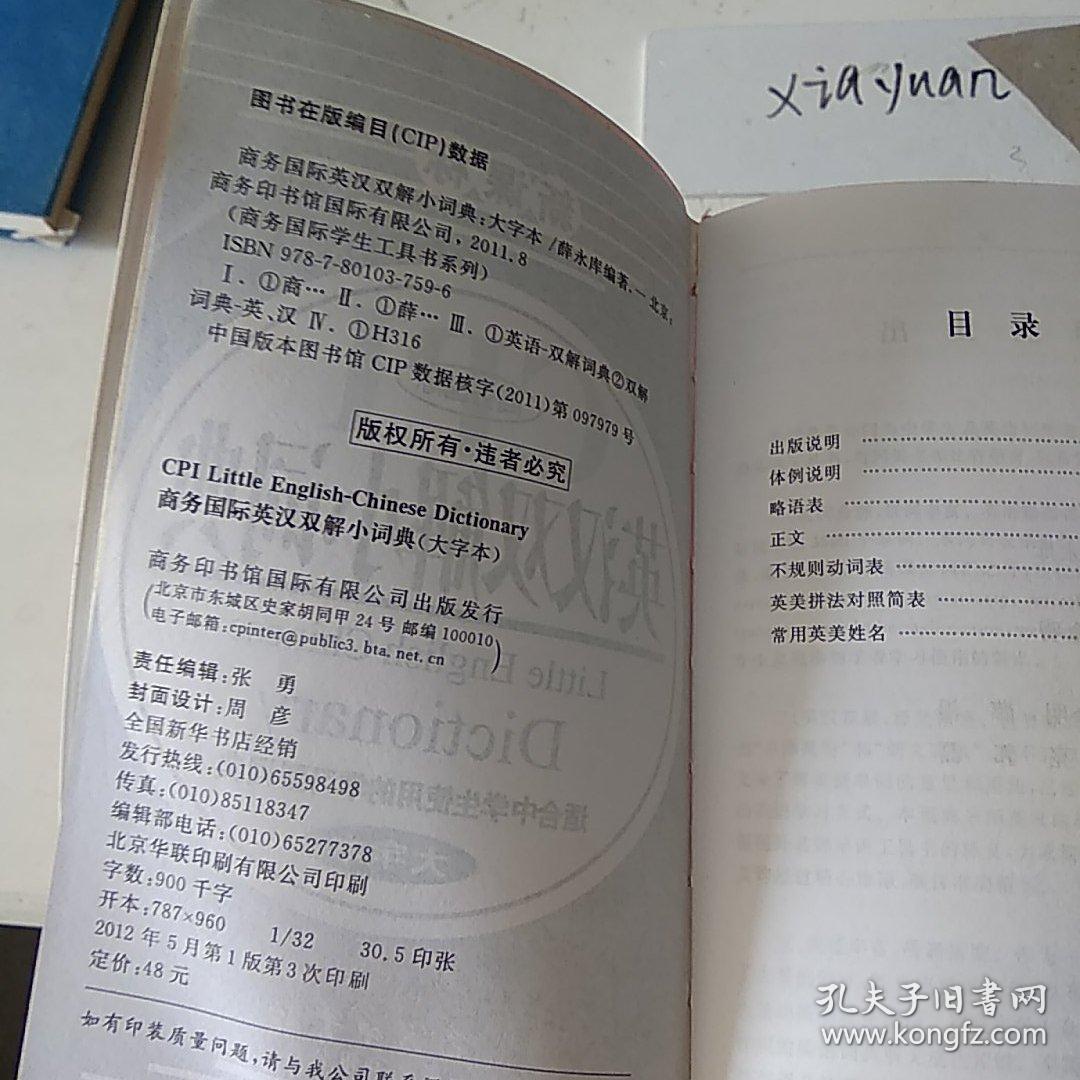 xiayuan
图书在版编目(CIP)数据
商务国际英汉双解小词典:大字本/薛永库编著.—北京:
商务印书馆国际有限公司,2011.8
(商务国际学生工具书系列)
ISBN 978-7-80103-759-6
Ⅰ.①商… Ⅱ.①薛… Ⅲ.①英语-双解词典②双解
词典-英、汉 Ⅳ.①H316
中国版本图书馆CIP数据核字(2011)第097979号
版权所有·违者必究
CPI Little English-Chinese Dictionary
商务国际英汉双解小词典(大字本)
商务印书馆国际有限公司出版发行
(北京市东城区史家胡同甲24号 邮编100010
电子邮箱:cpinter@public3.bta.net.cn)
责任编辑:张 勇
封面设计:周 彦
全国新华书店经销
发行热线:(010)65598498
传真:(010)85118347
编辑部电话:(010)65277378
北京华联印刷有限公司印刷
字数:900千字
开本:787×960 1/32 30.5印张
2012年5月第1版第3次印刷
定价:48元
如有印装质量问题,请与我公司联系
目录
出版说明
体例说明
略语表
正文
不规则动词表
英美拼法对照简表
常用英美姓名
孔夫子旧书网
www.kongfz.com